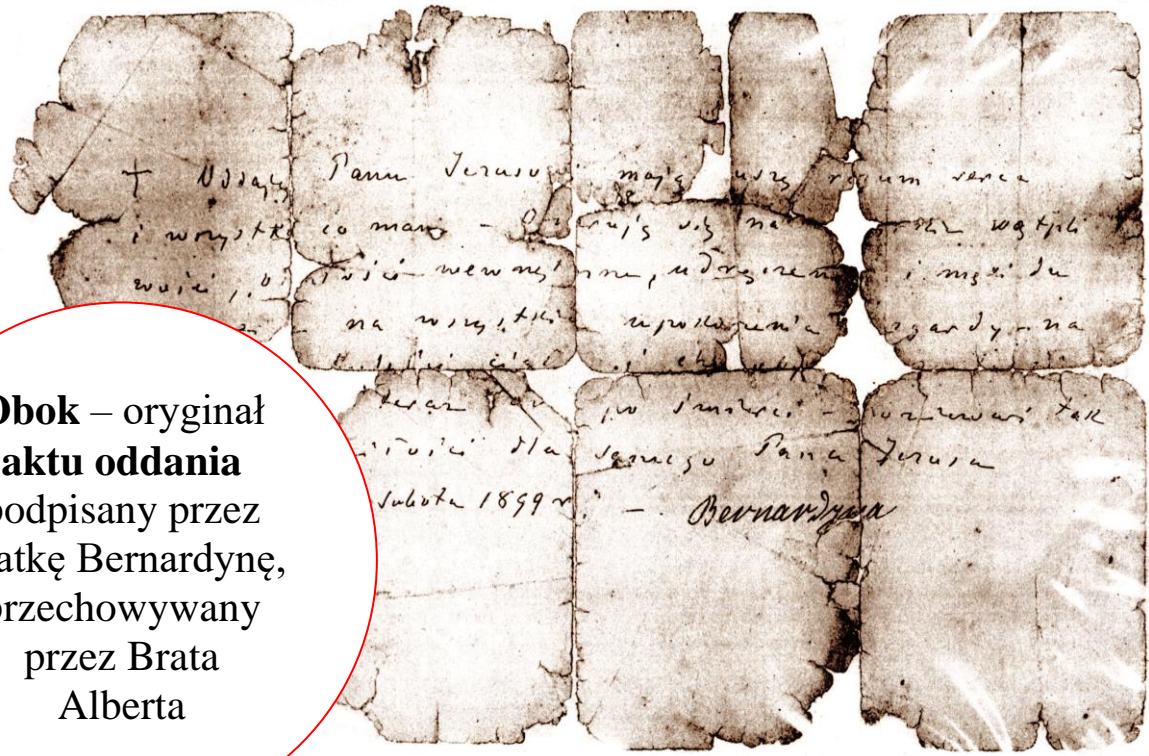 + Oddaję Panu Jezusowi moją duszę rozum serce
i wszystko co mam – się na wątpli
wości, oschłości wewnętrzne, udręczenia i męki du
na wszystkie upokorzenia wzgardy – na
boleści ciała i choroby
teraz po śmierci – ponieważ tak
miłości dla samego Pana Jezusa
Sobota 1899 r. – Bernardyna
Obok – oryginał
aktu oddania
podpisany przez
Matkę Bernardynę,
przechowywany
przez Brata
Alberta